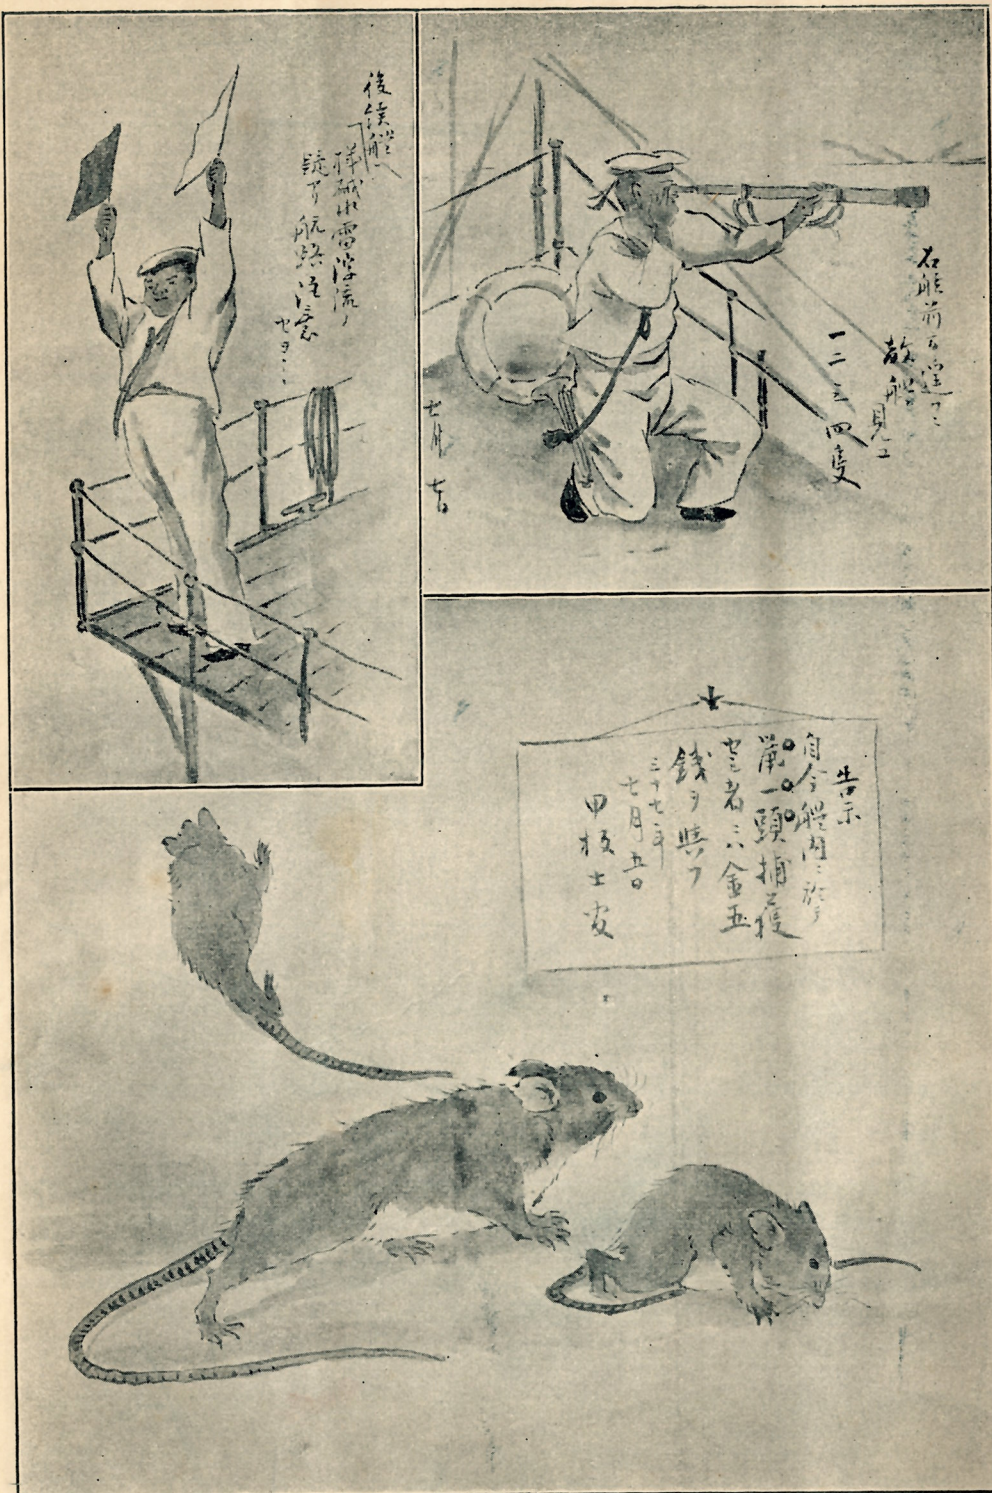 右舷前方遥
敵艦見ユ
一二三四隻
七月
後續艦へ
機械水雷浮流ノ
疑アリ航路注意
セヨ
告示
自今艦内ニ於テ
鼠一頭捕獲
セシ者ニハ金五
錢ヲ與フ
三十七年
七月五日
甲板士官